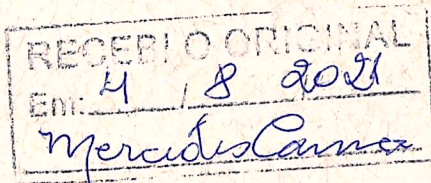 RECEBI O ORIGINAL
Em: 4 / 8 2021
Mercedes